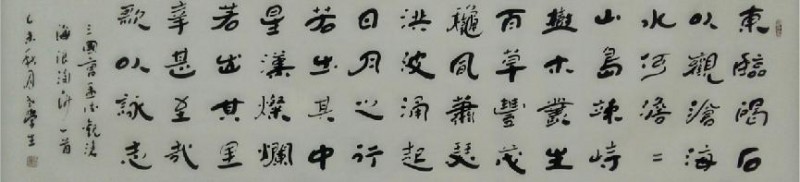 東臨碣石
以觀滄海
水何澹〻
山島竦峙
樹木叢生
百草豐茂
龝風蕭瑟
洪波涌起
日月之行
若出其中
星漢燦爛
若出其里
幸甚至哉
歌以詠志
三國曹孟德觀滄
海浪淘沙一首
乙未秋月